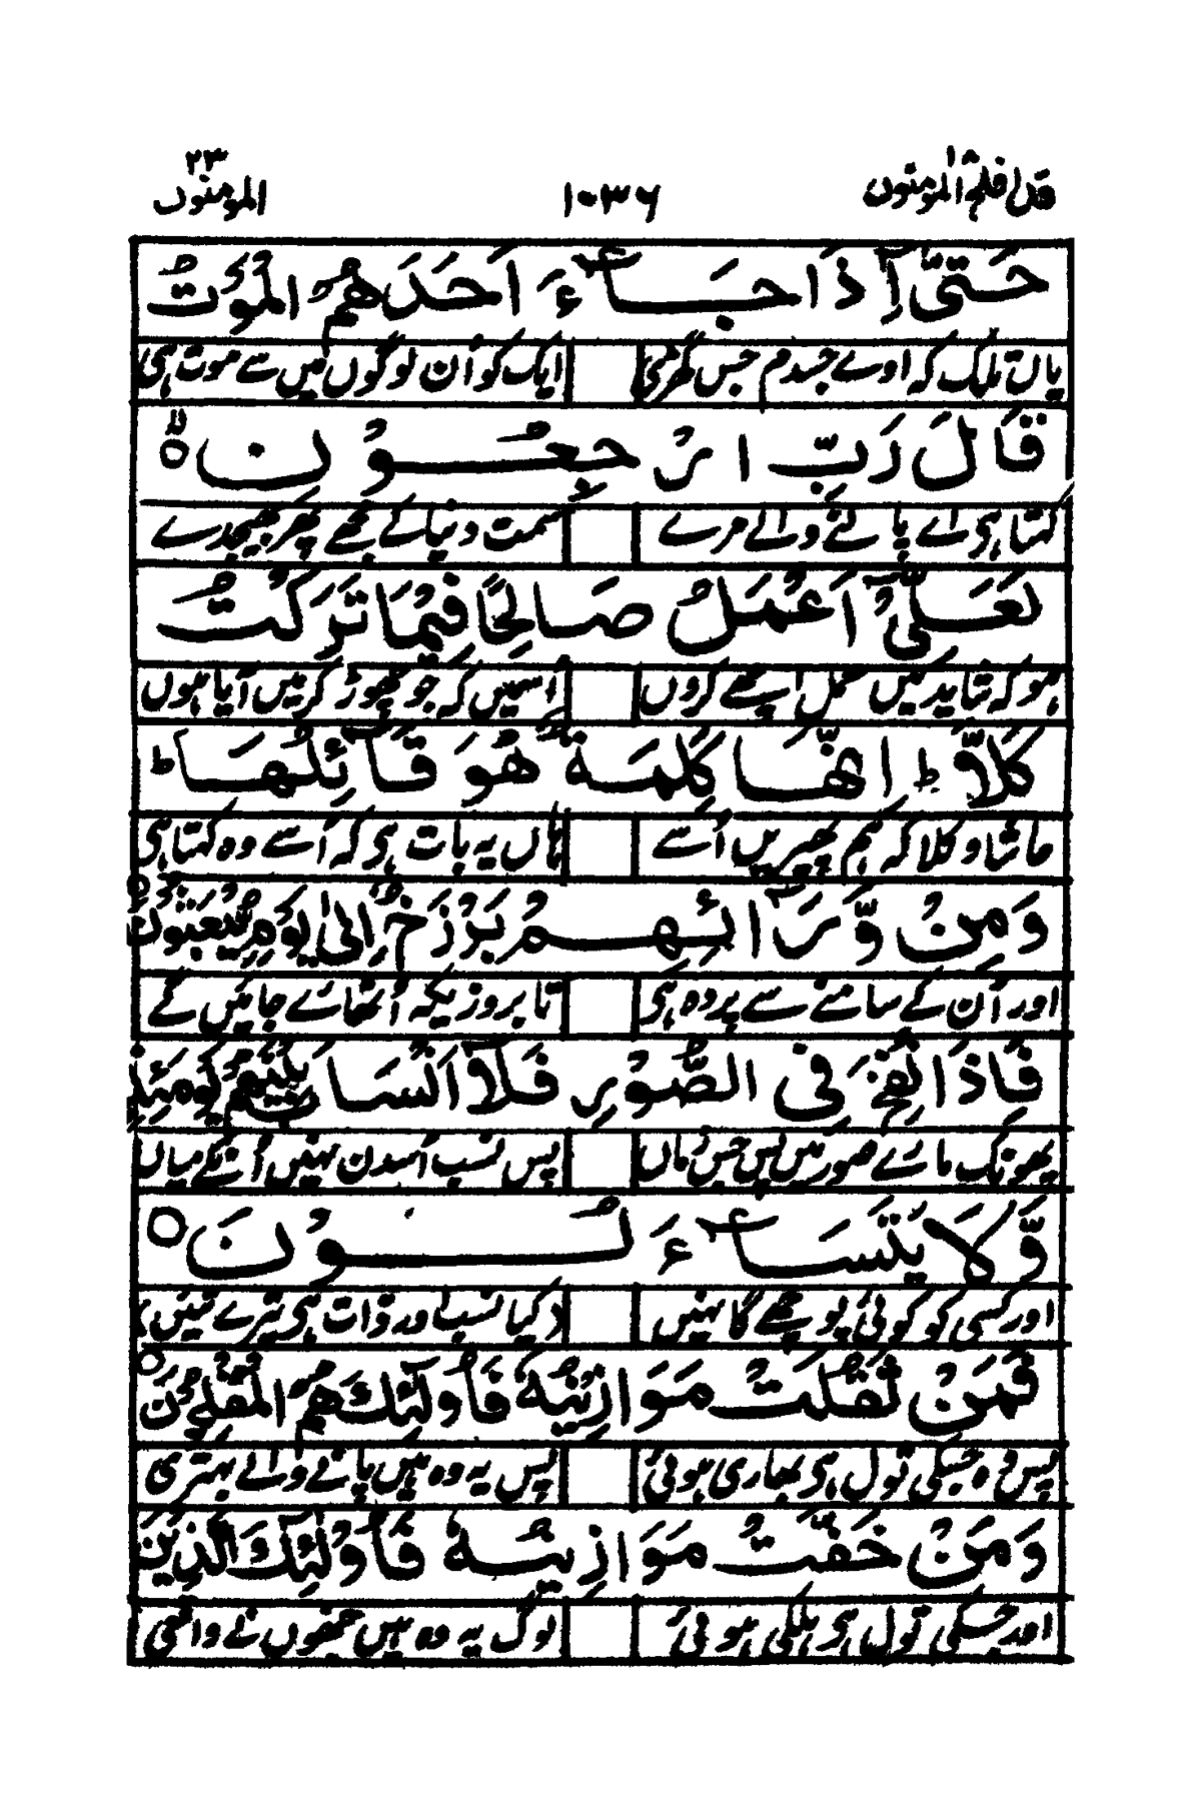 قد افلح ۱۸ المؤمنون ۱۰۳۶ المؤمنون ۲۳
حَتّٰۤی اِذَا جَآءَ اَحَدَهُمُ الْمَوْتُ
یاں تلک کہ اوے جسدم جس گھڑی ایک کو اُن لوگوں میں سے موت ہی
قَالَ رَبِّ ارْجِعُوْنِ ۙ
کہتا ہی اے پالنے والے مرے سمت دنیا کے مجھے پھر بھیجدے
لَعَلِّیْۤ اَعْمَلُ صَالِحًا فِیْمَا تَرَكْتُ
ہو کہ شاید میں عمل اچھے کروں اسمیں کہ جو چھوڑ کر میں آیا ہوں
كَلَّا ؕ اِنَّهَا كَلِمَةٌ هُوَ قَآئِلُهَا ؕ
حاشا و کلا کہ ہم پھیریں اُسے ہاں یہ بات ہی کہ اُسے وہ کہتا ہی
وَ مِنْ وَّرَآئِهِمْ بَرْزَخٌ اِلٰی یَوْمِ یُبْعَثُوْنَ ○
اور اُن کے سامنے سے پردہ ہی تا بروزیکہ اُٹھائے جائیں گے
فَاِذَا نُفِخَ فِی الصُّوْرِ فَلَاۤ اَنْسَابَ بَیْنَهُمْ یَوْمَئِذٍ
پھونک مارے صور میں پس جس زماں پس نسب اُسدن نہیں اُنکے میاں
وَّ لَا یَتَسَآءَلُوْنَ ○
اور کسی کو کوئی پوچھے گا نہیں کیا نسب اور ذات ہی تیرے تئیں
فَمَنْ ثَقُلَتْ مَوَازِیْنُهٗ فَاُولٰٓئِكَ هُمُ الْمُفْلِحُوْنَ ○
پس وہ جسکی تول ہی بھاری ہوئی پس یہ وہ ہیں پانے والے بہتری
وَ مَنْ خَفَّتْ مَوَازِیْنُهٗ فَاُولٰٓئِكَ الَّذِیْنَ
اور جسکی تول ہی ہلکی ہوئی لوگ یہ وہ ہیں جنھوں نے واقعی